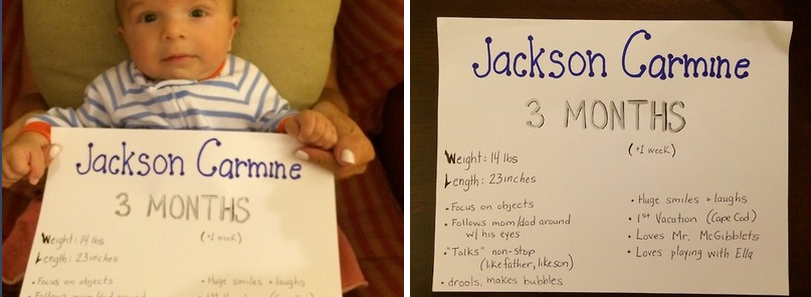 Jackson Carmine
3 MONTHS
(+1 week)
Weight: 14 lbs
Length: 23 inches
• Focus on objects
• Huge smiles + laughs
Jackson Carmine
3 MONTHS
(+1 week)
Weight: 14 lbs
Length: 23 inches
• Focus on objects
• Follows mom/dad around
w/ his eyes
• "Talks" non-stop
(like father, like son)
• drools, makes bubbles
• Huge smiles + laughs
• 1st Vacation (Cape Cod)
• Loves Mr. McGibblets
• Loves playing with Ella